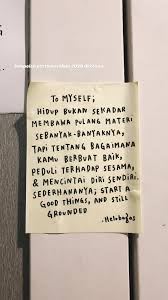 To MYSELF;
HIDUP BUKAN SEKADAR
MEMBAWA PULANG MATERI
SEBANYAK-BANYAKNYA,
TAPI TENTANG BAGAIMANA
KAMU BERBUAT BAIK,
PEDULI TERHADAP SESAMA,
& MENCINTAI DIRI SENDIRI.
SEDERHANANYA; START A
GOOD THINGS, AND STILL
GROUNDED